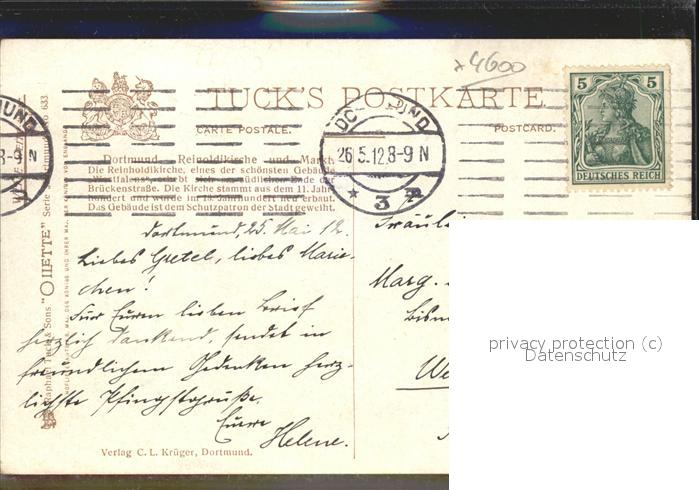 *4600
TUCK'S POSTKARTE
CARTE POSTALE.
POSTCARD.
5 5
DEUTSCHES REICH
DORTMUND
26.5.12.8-9 N
* 3
MUND
8-9 N
Dortmund. Reinoldikirche und Markt.
Die Reinholdikirche, eines der schönsten Gebäude
Westfalens, erhebt sich am südlichen Ende der
Brückenstraße. Die Kirche stammt aus dem 11. Jahr-
hundert und wurde im 13. Jahrhundert neu erbaut.
Das Gebäude ist dem Schutzpatron der Stadt geweiht.
Raphael Tuck & Sons "OILETTE" Serie Dortmund No 633
Dortmund, 25. Mai 12.
Liebes Gretel, liebes Marie-
chen!
Für Euren lieben Brief
herzlich dankend, sendet in
freundlichem Gedenken herz-
lichste Pfingstgrüße.
Eure
Helene.
Fräulein
Marg.
We
Verlag C. L. Krüger, Dortmund.
privacy protection (c)
Datenschutz